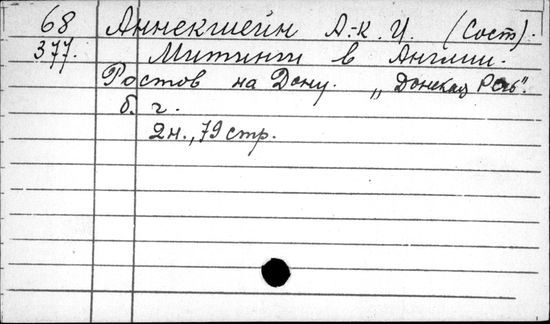 68 Аннекштейн А.-к. И. (Сост).
377. Митинги в Англии.
Ростов на Дону. „Донская Речь".
б. г.
2н., 79 стр.